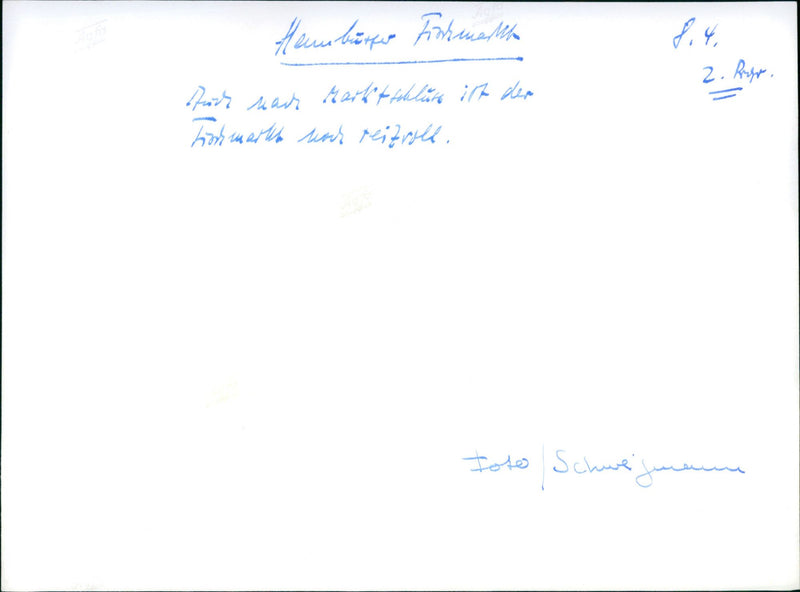 Hamburger Fischmarkt
8. 4.
2. Progr.
Auch nach Marktschluss ist der
Fischmarkt noch reizvoll.
Foto / Schweigmann